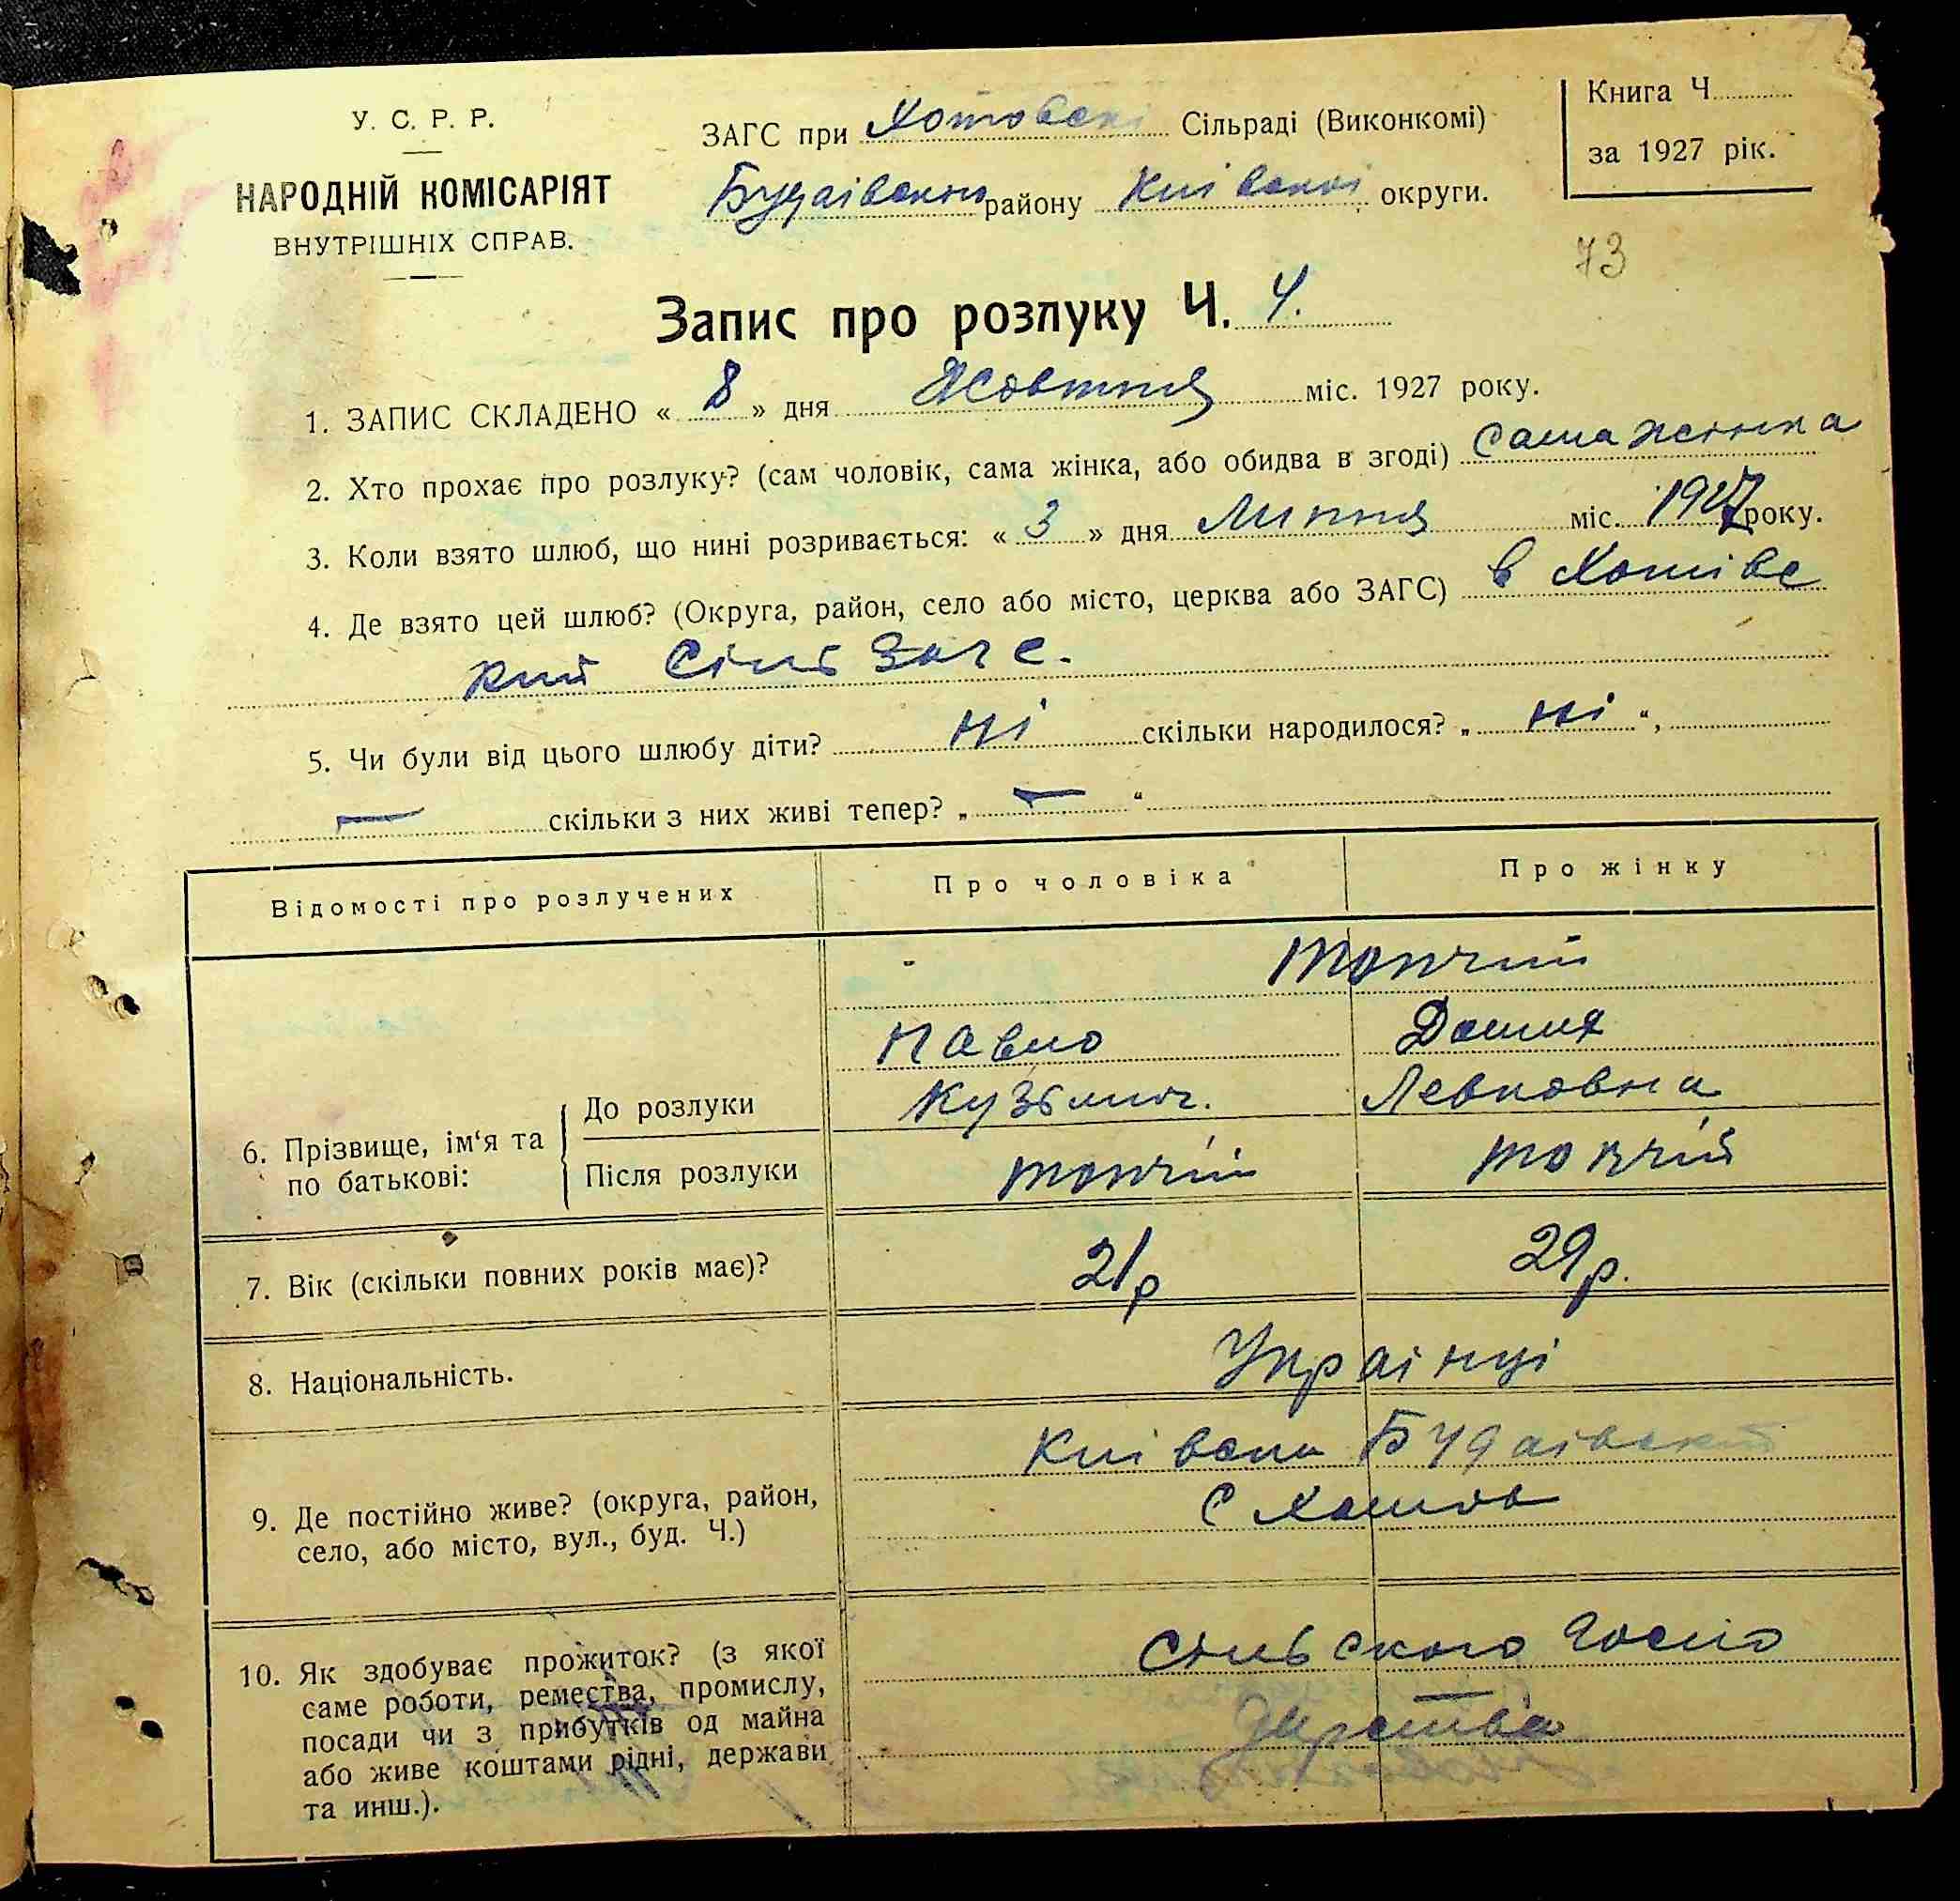 У. С. Р. Р.
НАРОДНІЙ КОМІСАРІЯТ
ВНУТРІШНІХ СПРАВ.
ЗАГС при Хотовскі Сільраді (Виконкомі)
Будаівского району Киівскоі округи.
Книга Ч.
за 1927 рік.
73
Запис про розлуку Ч. 4.
1. ЗАПИС СКЛАДЕНО « 8 » дня Жовтня міс. 1927 року.
2. Хто прохає про розлуку? (сам чоловік, сама жінка, або обидва в згоді) Сама жінка
3. Коли взято шлюб, що нині розривається: « 3 » дня Липня міс. 1927 року.
4. Де взято цей шлюб? (Округа, район, село або місто, церква або ЗАГС) в Хотівс
кий Сільзагс.
5. Чи були від цього шлюбу діти? ні скільки народилося? „ ні “,
— скільки з них живі тепер? „ — “
Відомості про розлучених Про чоловіка Про жінку
Топчий
Павло
Кузьмич. Левковна
6. Прізвище, ім‘я та по батькові:
До розлуки
Після розлуки Топчій Топчій
7. Вік (скільки повних років має)? 21р 29р.
8. Національність. Українці
9. Де постійно живе? (округа, район,
село, або місто, вул., буд. Ч.)
Киівськ Будаівский
С Хотов
10. Як здобуває прожиток? (з якої
саме роботи, ремества, промислу,
посади чи з прибутків од майна
або живе коштами рідні, держави
та инш.).
Сільського Госпо
дарства